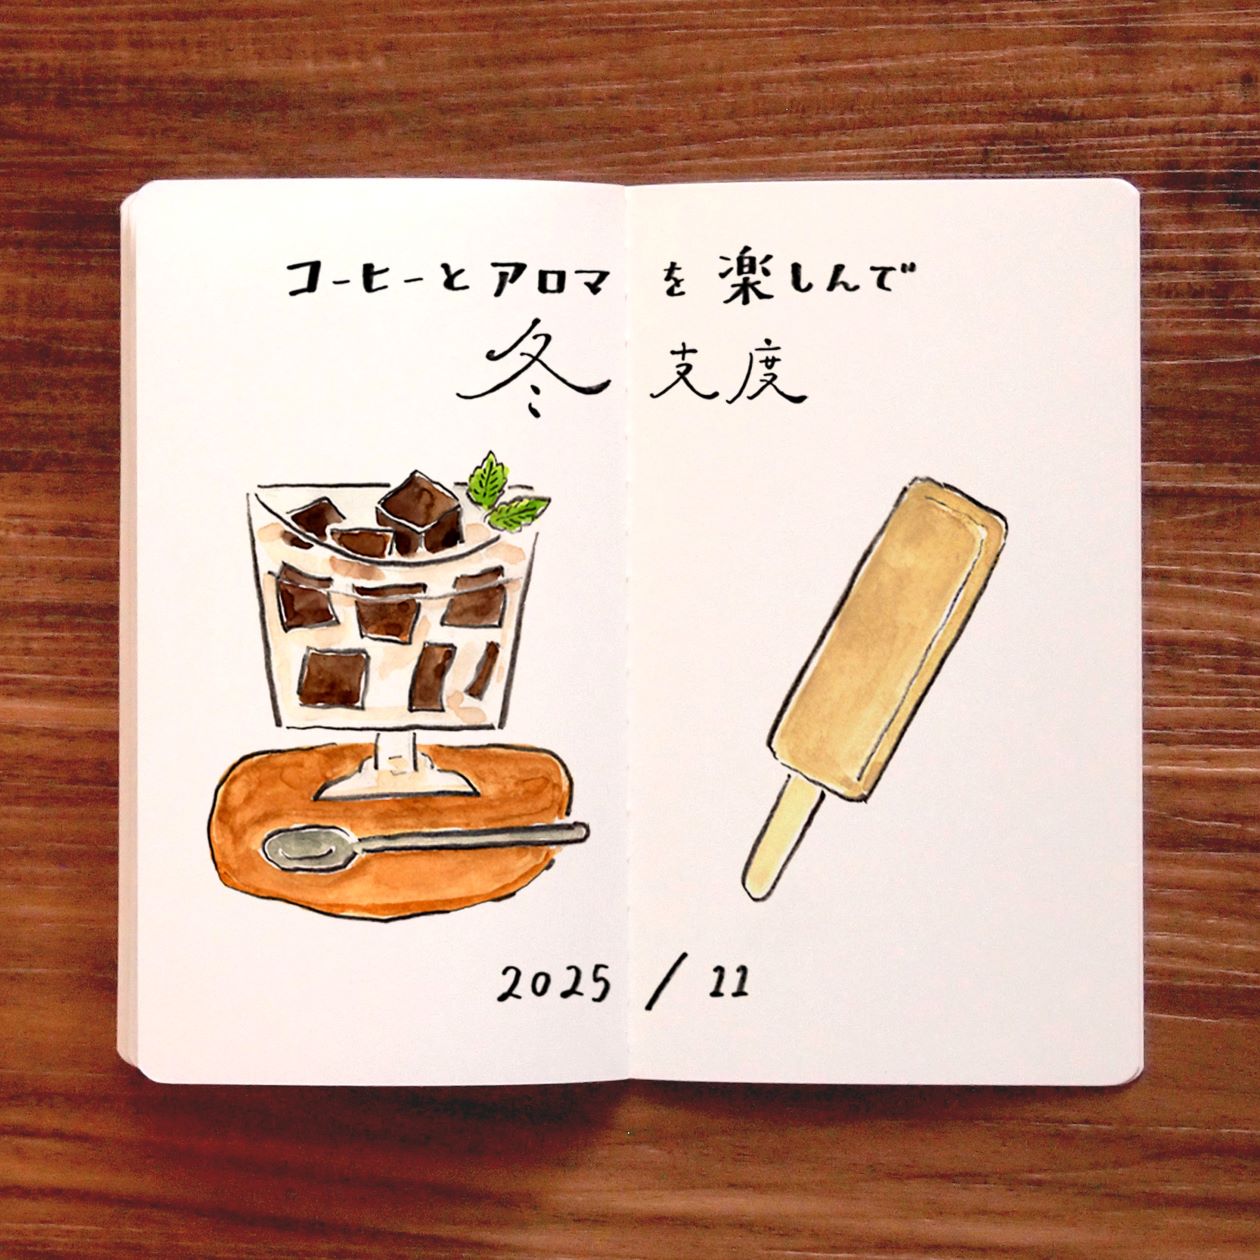 コーヒーとアロマを楽しんで
冬支度
2025/11